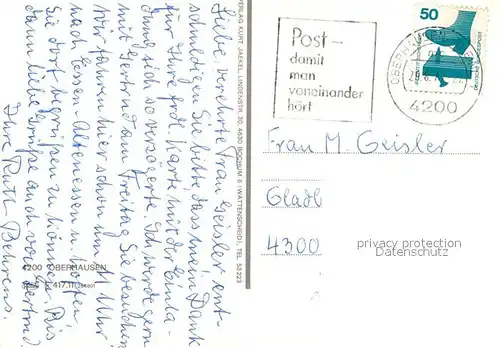 Liebe, verehrte Frau Geisler, ent-
schuldigen Sie bitte, dass mein Dank
für Ihre frdl. Karte mit der Einla-
dung sich so verzögerte. Ich werde gern
mit Gertrud am Freitag Sie besuchen.
Wir fahren hier schon um 11 Uhr
nach Essen-Altenessen u. hoffen,
Sie dort begrüßen zu können. Bis
dann liebe Grüße auch von Gertrud
Ihre Ruth Behrens.
4200 OBERHAUSEN
VERLAG KURT JAEKEL, LINDENSTR. 30, 4630 BOCHUM 6 (WATTENSCHEID), TEL. 53223
Post-
damit
man
voneinander
hört
50
DEUTSCHE BUNDESPOST
4200
Frau M. Geisler
Gladb
4300
privacy protection
Datenschutz